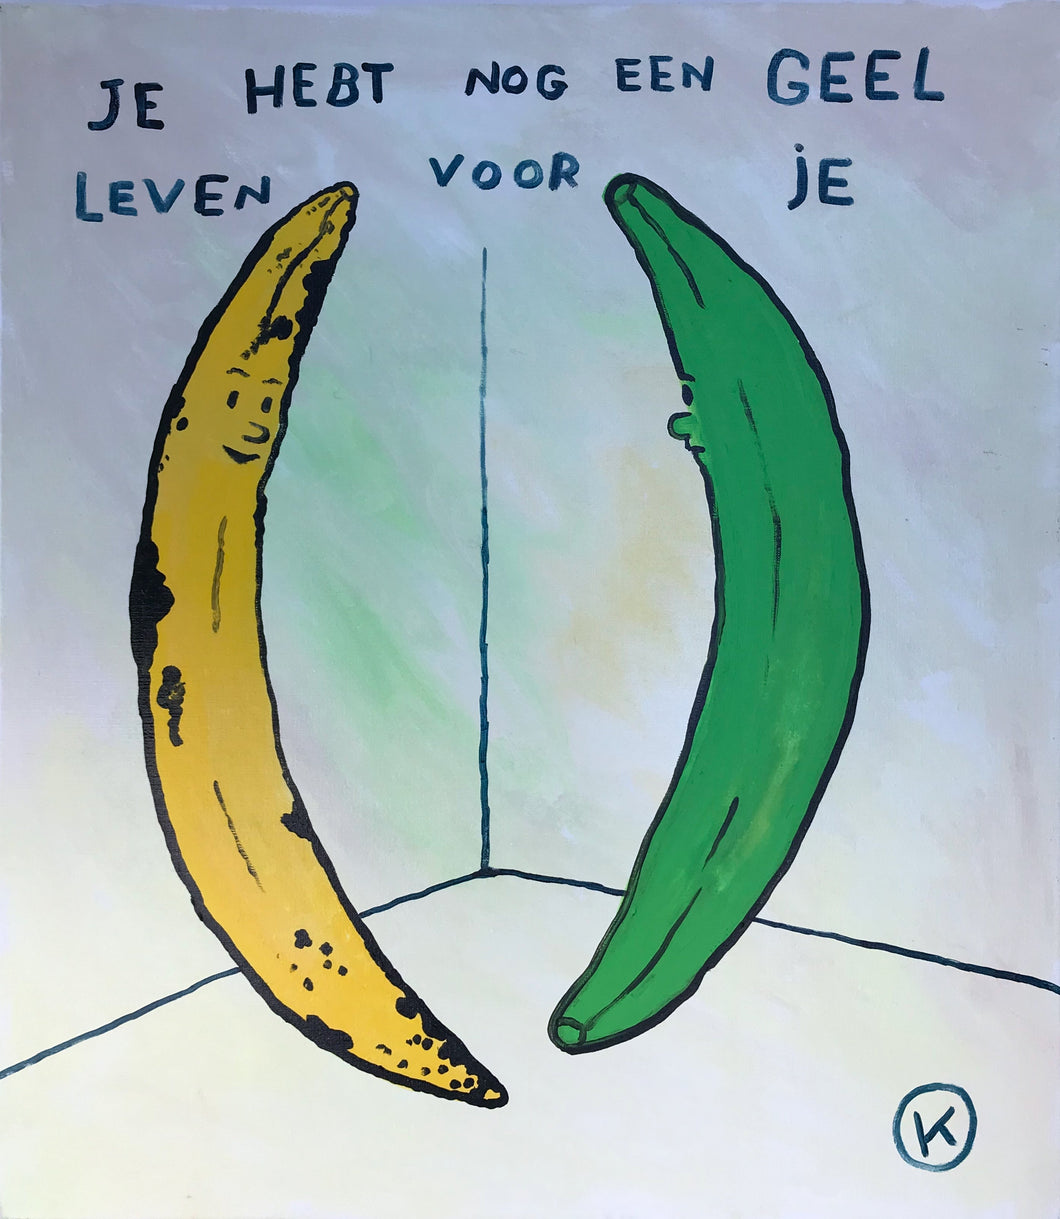 JE HEBT NOG EEN GEEL
LEVEN VOOR jE
K